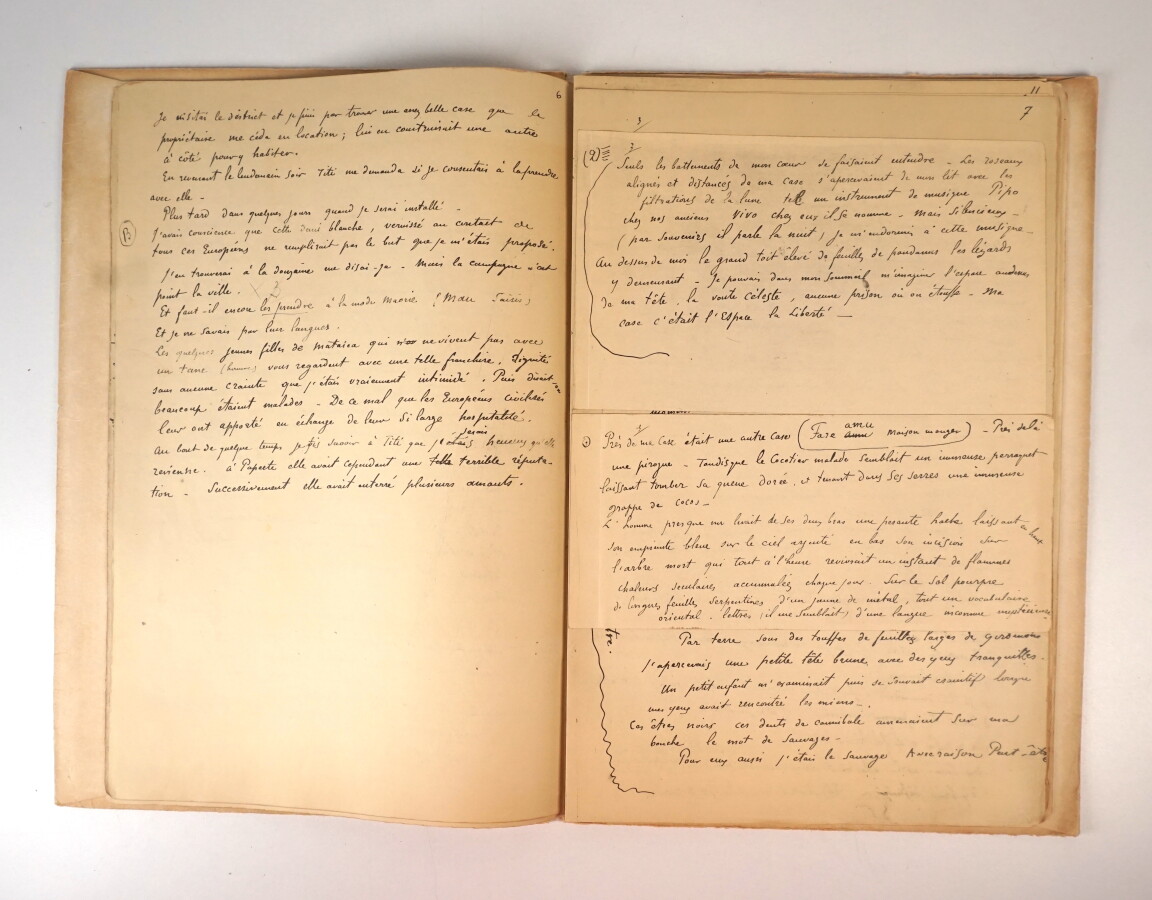 6
Je visitai le district et je finis par trouver une assez belle case que le
propriétaire me céda en location ; lui en construisait une autre
à côté pour y habiter.
En revenant le lendemain soir Titi me demanda si je consentais à la prendre
avec elle -
Plus tard dans quelques jours quand je serai installé -
B
J'avais conscience que cette demi blanche, vernissé au contact de
tous ces Européens ne remplirait pas le but que je m'étais proposé.
J'en trouverai à la douzaine me disai-je - Mais la campagne n'est
point la ville.
Et faut-il encore les prendre à la mode Maorie. (Mau Saisir)
Et je ne savais pas leur langues.
Les quelques jeunes filles de Mataiea qui ne vivent pas avec
un tane (homme) vous regardent avec une telle franchise, dignité
sans aucune crainte que j'étais vraiement intimidé. Puis disait on
beaucoup étaient malades - De ce mal que les Européens civilisés
leur ont apporté en échange de leur si large hospitalité.
Au bout de quelque temps je fis savoir à Titi que je serais heureux qu'elle
revienne. à Papeete elle avait cependant une telle terrible réputa-
tion - Successivement elle avait enterré plusieurs amants.
11
7
(2)
Seuls les battements de mon cœur se faisaient entendre - Les roseaux
alignés et distancés de ma case s'apercevaient de mon lit avec les
filtrations de la lune tel un instrument de musique Pipo
chez nos anciens Vivo chez eux il se nomme - Mais silencieux -
(par souvenirs il parle la nuit) je m'endormis à cette musique -
Au dessus de moi le grand toit élevé de feuilles de pandanus les lézards
y demeurant - Je pouvais dans mon sommeil m'imaginer l'espace au dessus
de ma tête, la voute céleste, aucune prison où on étouffe - Ma
case c'était l'Espace la Liberté -
1
Près de ma case était une autre case (Fare amu Maison manger) - Près de là
une pirogue - Tandisque le Cocotier malade semblait un immense perroquet
laissant tomber sa queue dorée, et tenant dans ses serres une immense
grappe de cocos -
L'homme presque nu levait de ses deux bras une pesante hache laissant en haut
son empreinte bleue sur le ciel argenté en bas son incision sur
l'arbre mort qui tout à l'heure revivrait un instant de flammes
chaleurs séculaires accumulées chaque jour - Sur le sol pourpre
de longues feuilles serpentines d'un jaune de métal, tout un vocabulaire
oriental - lettres (il me semblait) d'une langue inconnue mystérieuse
Par terre sous des touffes de feuilles larges de giromons
j'apercevais une petite tête brune avec des yeux tranquilles.
Un petit enfant m'examinait puis se sauvait craintif lorsque
mes yeux avait rencontré les miens -
Ces êtres noirs ces dents de cannibale amenaient sur ma
bouche le mot de Sauvages -
Pour eux aussi j'étais le Sauvage Avec raison Peut-être